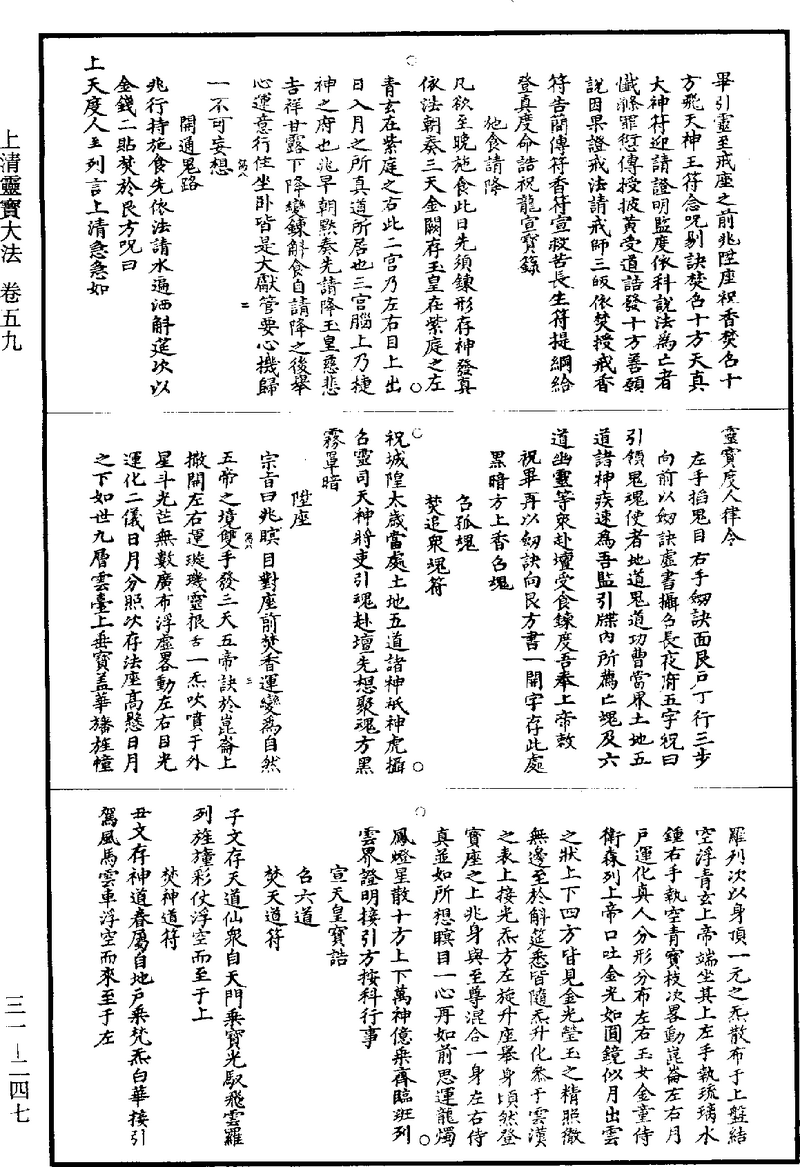 畢引靈至戒座之前兆陞座祝香焚召十
方飛天神王符念咒剔訣焚召十方天真
大神符迎請證明監度依科說法為亡者
懺滌罪愆傳授披黃受道誥發十方善願
說因果證戒法請戒師三皈依焚授戒香
符告簡傳符香符宣救苦長生符提綱給
登真度命誥祝龍宣寶籙
施食請降
凡欲至晚施食此日先須鍊形存神發真
依法朝奏三天金闕存玉皇在紫庭之左
青玄在紫庭之右此二宮乃左右目上出
日入月之所真道所居也三宮腦上乃捷
神之府也兆早朝默奏先請降玉皇慈悲
吉祥甘露下降變鍊斛食自請降之後舉
心運意行住坐卧皆是大獻管要心機歸
一不可妄想
開通鬼路
兆行持施食先依法請水遍洒斛筵次以
金錢二貼焚於艮方咒曰
上天度人至列言上清急急如
靈寶度人律令
左手掐鬼目右手劒訣面艮戶丁行三步
向前以劒訣虛書攝召長夜府五字祝曰
引領鬼魂使者地道鬼道功曹當界土地五
道諸神疾速為吾監引牒內所薦亡魂及六
道幽靈等衆赴壇受食鍊度吾奉上帝敕
祝畢再以劒訣向艮方書一開字存此處
黑暗方上香召魂
召孤魂
焚追衆魂符
祝城隍太歲當處土地五道諸神祇神虎攝
召靈司天神將吏引魂赴壇先想聚魂方黑
霧罩暗
陞座
宗旨曰兆瞑目對座前焚香運變為自然
五帝之境雙手發三天五帝訣於崑崙上
撒開左右運璇璣靈根舌一炁吹噴于外
星斗光芒無數廣布浮虛畧動左右目光
運化二儀日月分照次存法座高懸日月
之下如世九層雲臺上垂寶盖華旛旌幢
羅列次以身頂一元之炁散布于上盤結
空浮青玄上帝端坐其上左手執琉璃水
鍾右手執空青寶枝次畧動崑崙左右月
戶運化真人分形分布左右玉女金童侍
衛森列上帝口吐金光如圓鏡似月出雲
之狀上下四方皆見金光瑩玉之精照徹
無邊至於斛筵悉皆隨炁升化叅于雲漢
之表上接光炁方左旋升座舉身頃然登
寶座之上兆身與至尊混合一身左右侍
真並如所想瞑目一心再如前思運龍燭
鳳燈星散十方上下萬神億乘齊臨班列
雲界證明接引方按科行事
宣天皇寶誥
召六道
焚天道符
子文存天道仙衆自天門乘寶光馭飛雲羅
列旌幢彩仗浮空而至于上
焚神道符
丑文存神道眷屬自地戶乘梵炁白華接引
駕風馬雲車浮空而來至于左
上清靈寶大法 卷五九
三一—二四七